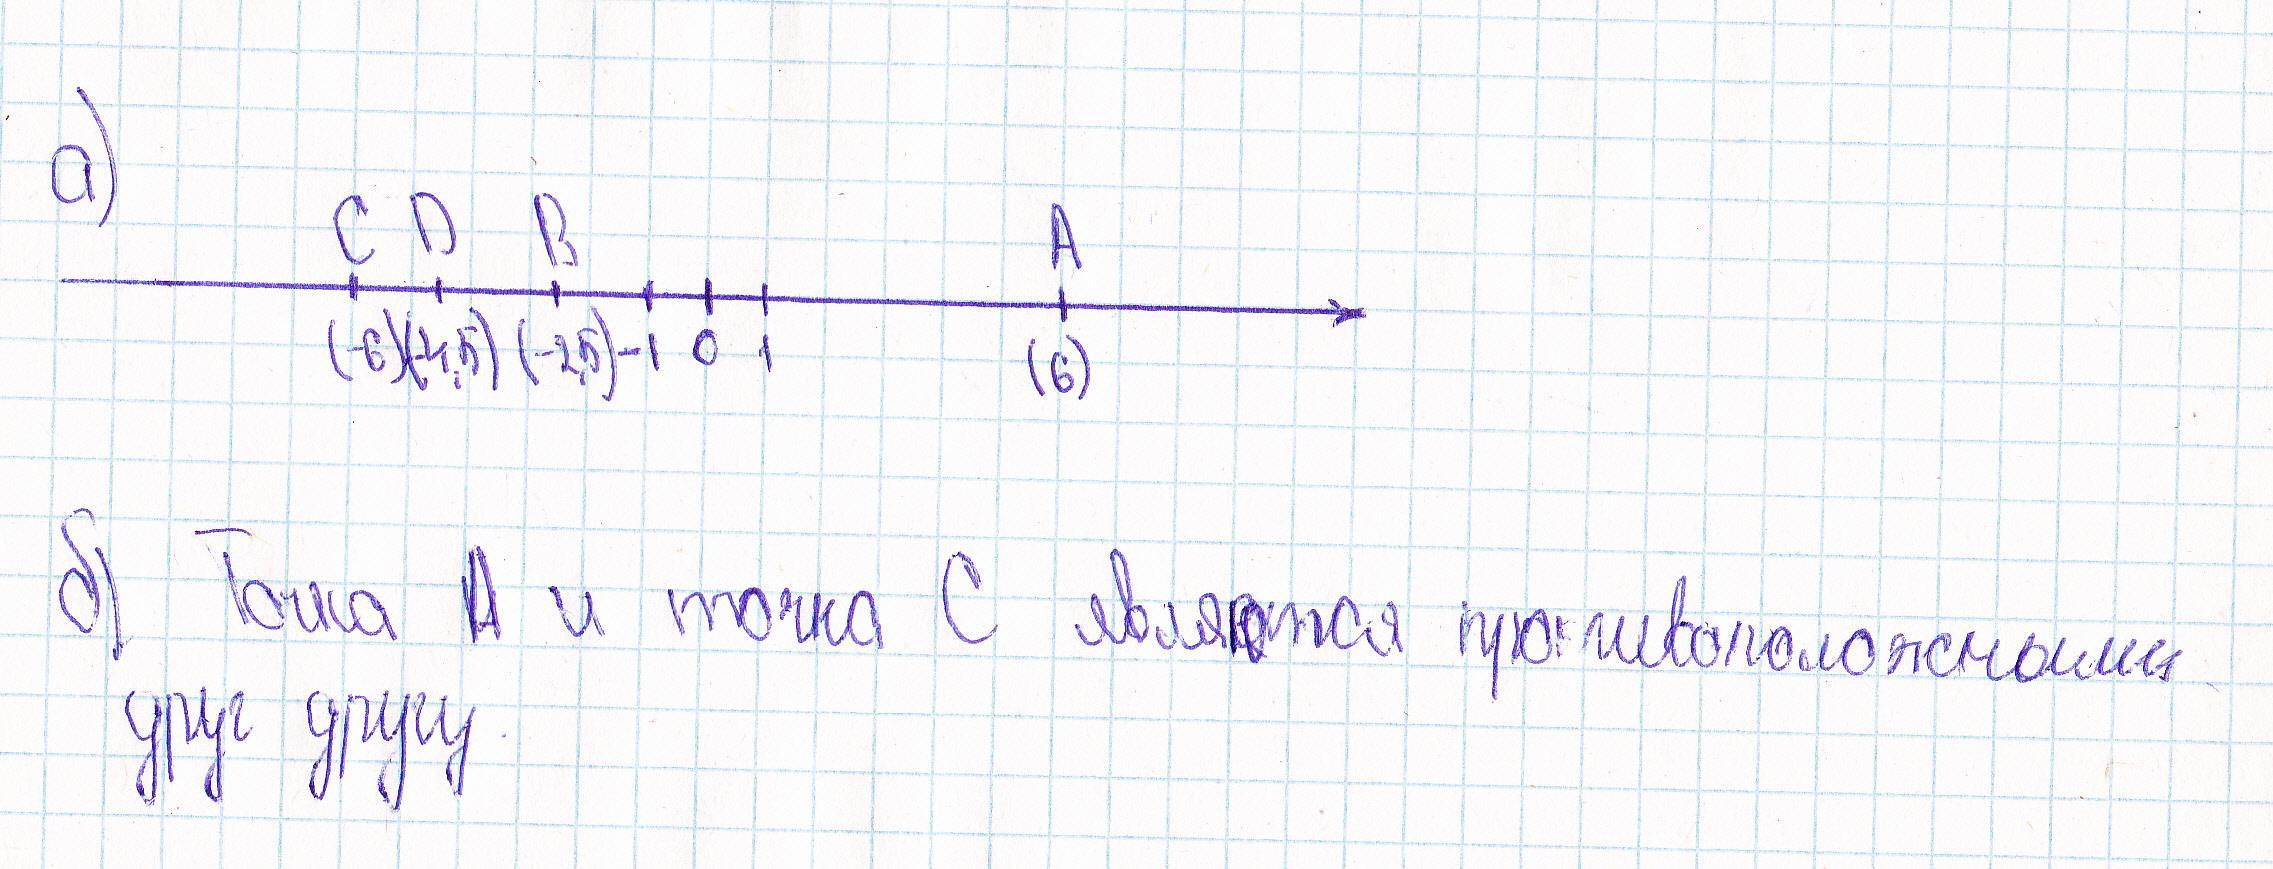 а)
C D B A
(-6) (-4,5) (-2,5) -1 0 1 (6)
б) Точка A и точка C являются противоположными
друг другу.